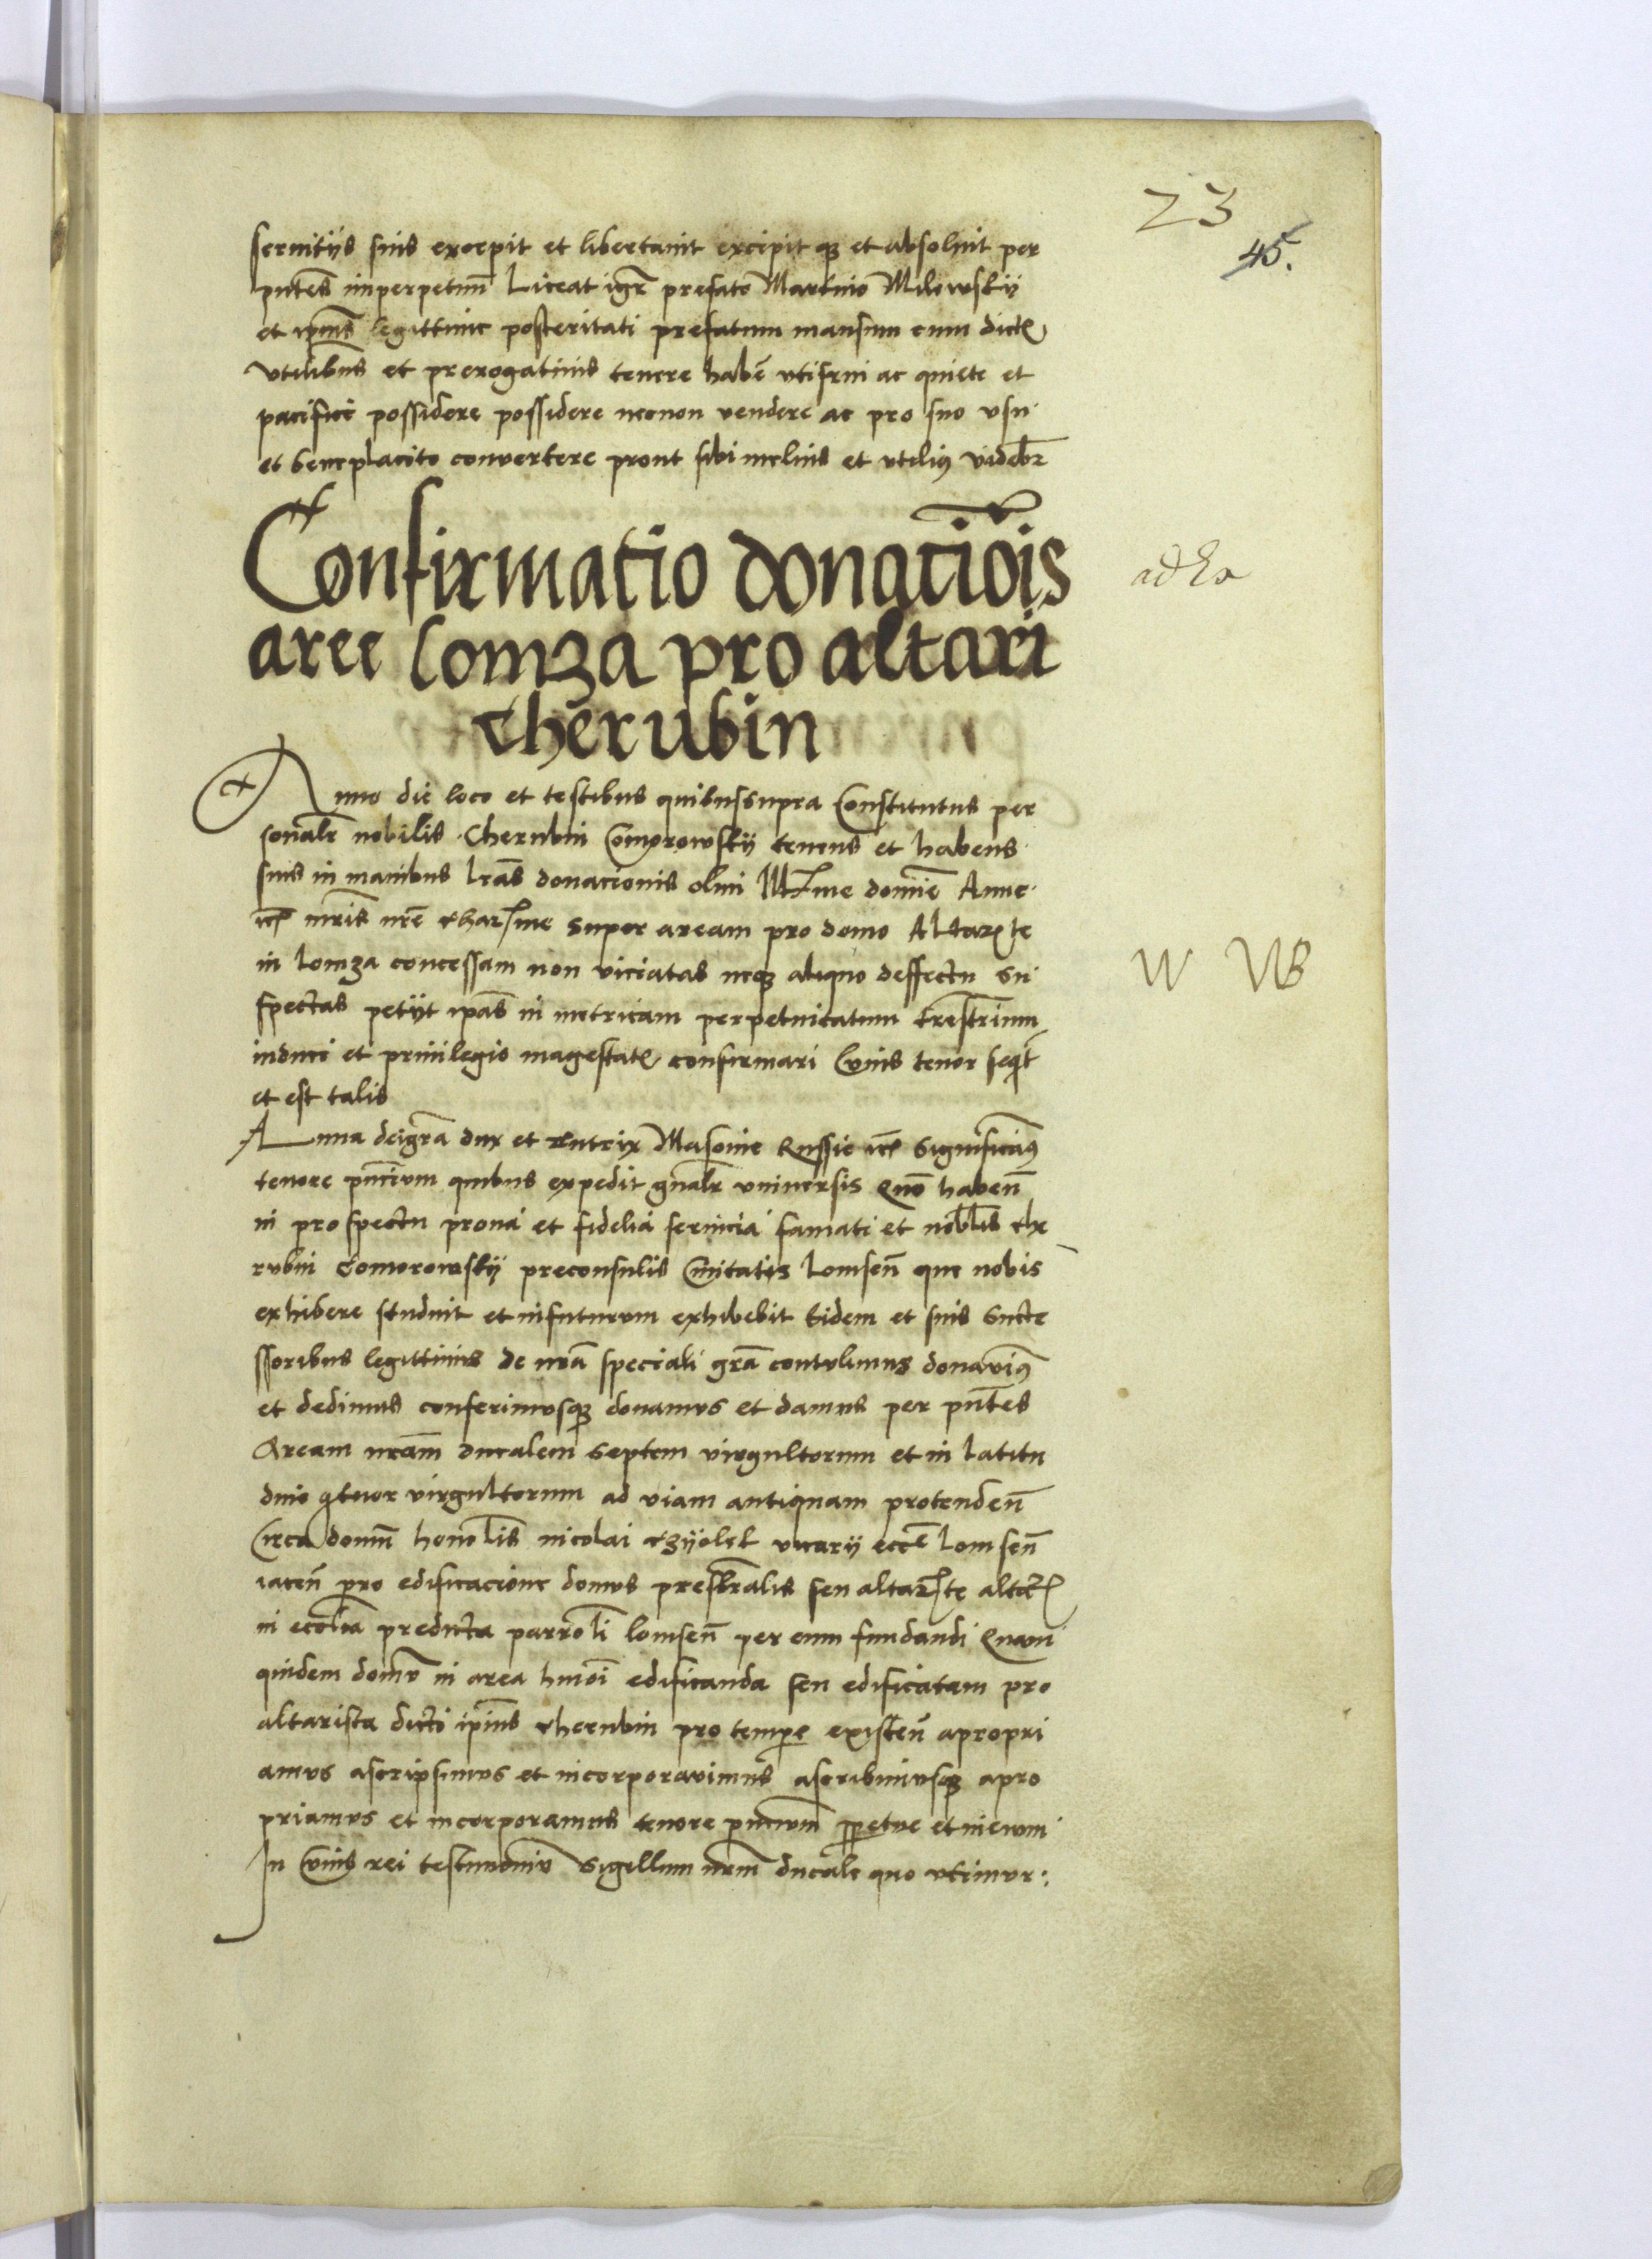 23
45.
seruitijs suis excepit et libertauit excipit q₃ et absoluit per
pn̄tes imperpetuū Liceat igr̄ prefato Martino Milowskij
et ipsius̄ legittime posteritati prefatum mansum cum dictꝭ
vtilibus et prerogatiuis tenere habē vtifrui ac quiete et
pacifice possidere possidere necnon vendere ac pro suo vsu
et beneplacito convertere prout sibi melius et vtiliꝰ videbr̄
Confirmatio donatiōis
aree Lomza pro altari
Cherubin
ad Ex
Anno die loco et testibus quibussupra Constitutus per
sonalr̄ nobilis Cherubin Comorowskij tenens et habens
suis in manibus lrās donacionis olim Illr̄me domīe Anne
mr̄is nr̄e charme super aream pro domo Altariste
in Lomza concessam non viciatas neq₃ aliquo deffectu su
spectas petijt ipās in metricam perpetuitatum trestrium
induci et priuilegio magestatꝭ confirmari Cuius tenor seqt̄
et est talis
W WB
Anna deigrā dux et tutrix Masouie Russie ꝛc̄ Significamꝰ
tenore pn̄cium quibus expedit gn̄alr̄ vniuersis Quō habeñ
in prospectu prona et fidelia seruicia famati et nobilis che
rubin Comorowskij preconsulis Ciuitatis Lomseñ que nobis
exhibere studuit et infuturum exhibebit Eidem et suis Succe
ssoribus legittimis de nr̄a speciali grā contulimus donauimꝰ
et dedimus conferimusq₃ donamus et damus per pn̄tes
Aream nr̄am ducalem septem virgultorum et in latitu
dine qtuor virgultorum ad viam antiquam protendeñ
Circa domū honolis̄ nicolai czijolek vicarij eccē Lomseñ
iaceñ pro edificacione domus presbr̄alis seu altariste altarꝭ
in eccl̄ia predicta parrol̄i lomseñ per eum fundandi Quam
quidem domū in area hm̄oi edificanda seu edificatam pro
altarista dicti ipius̄ cherubin pro tempe existeñ apropri
amus ascripsimus et incorporauimus ascribimusq₃ apro
priamus et incorporamus tenore pn̄cium ppetue et in euum
In Cuius rei testimoniū Sigellum nr̄m ducale quo vtimur: